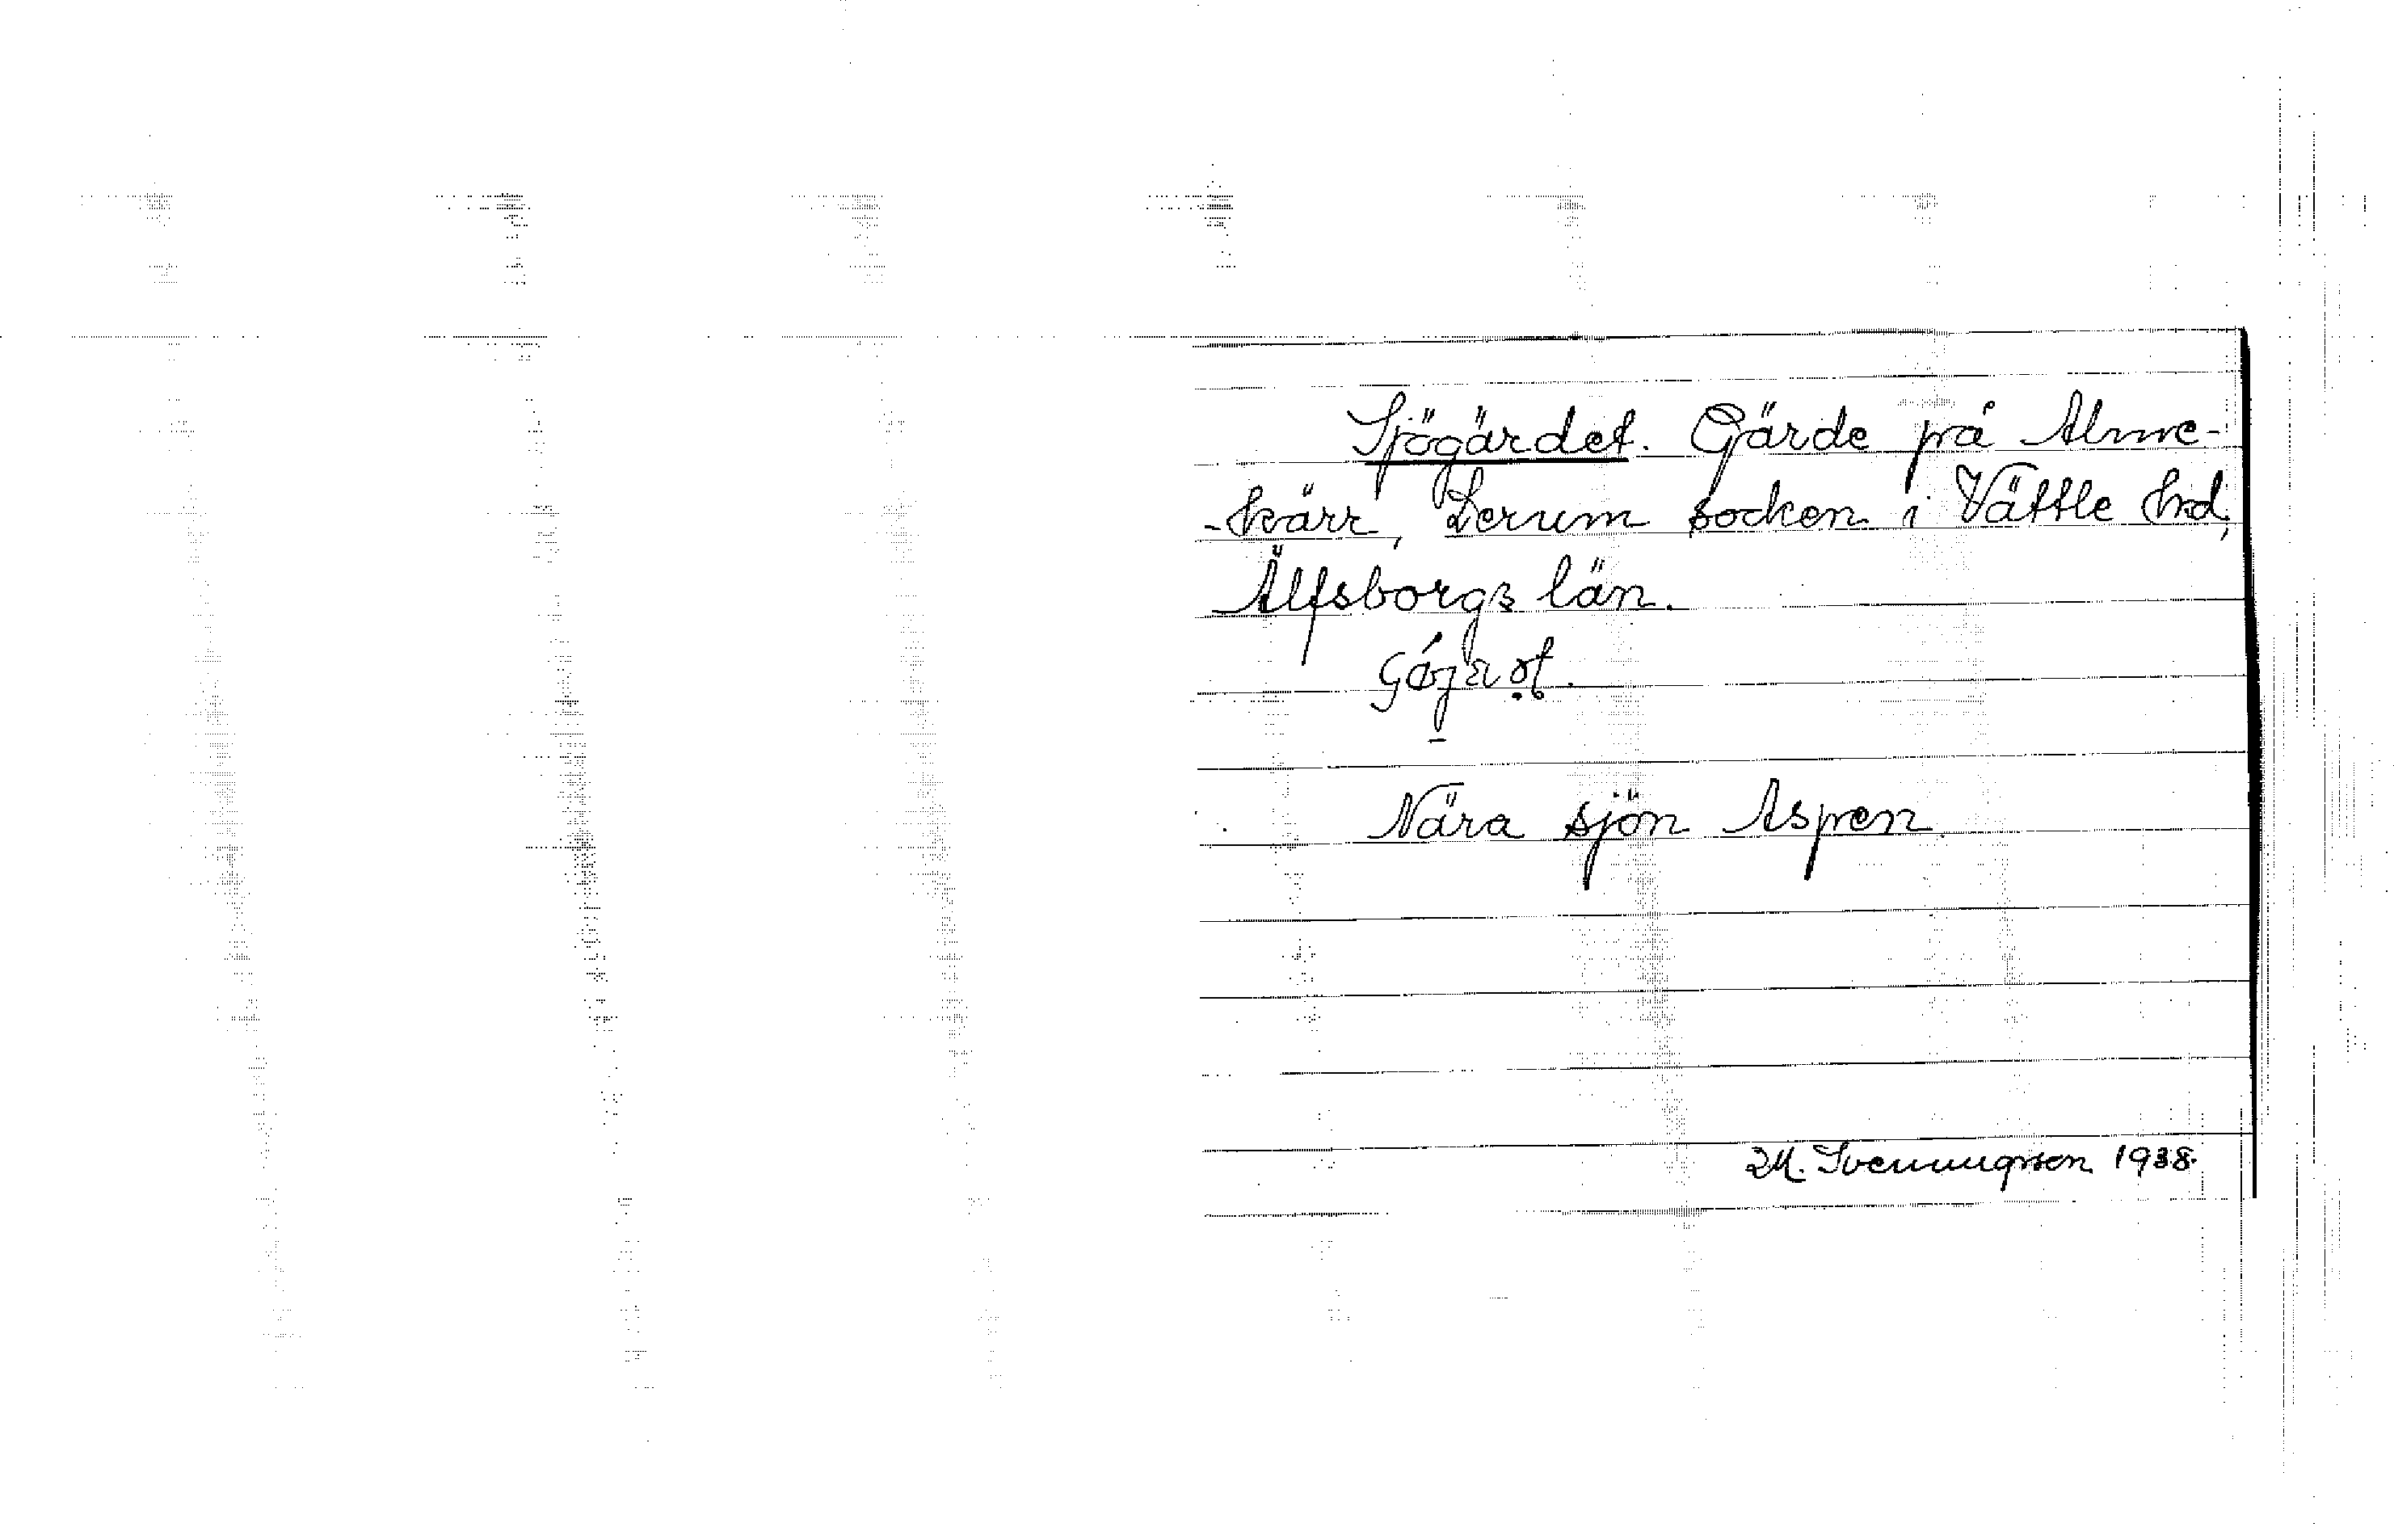 Sjögärdet. Gärde på Alme-
-kärr, Lerum socken i Vättle hrd,
Älfsborgs län.
Nära sjön Aspen.
M. Svenningsson 1938.